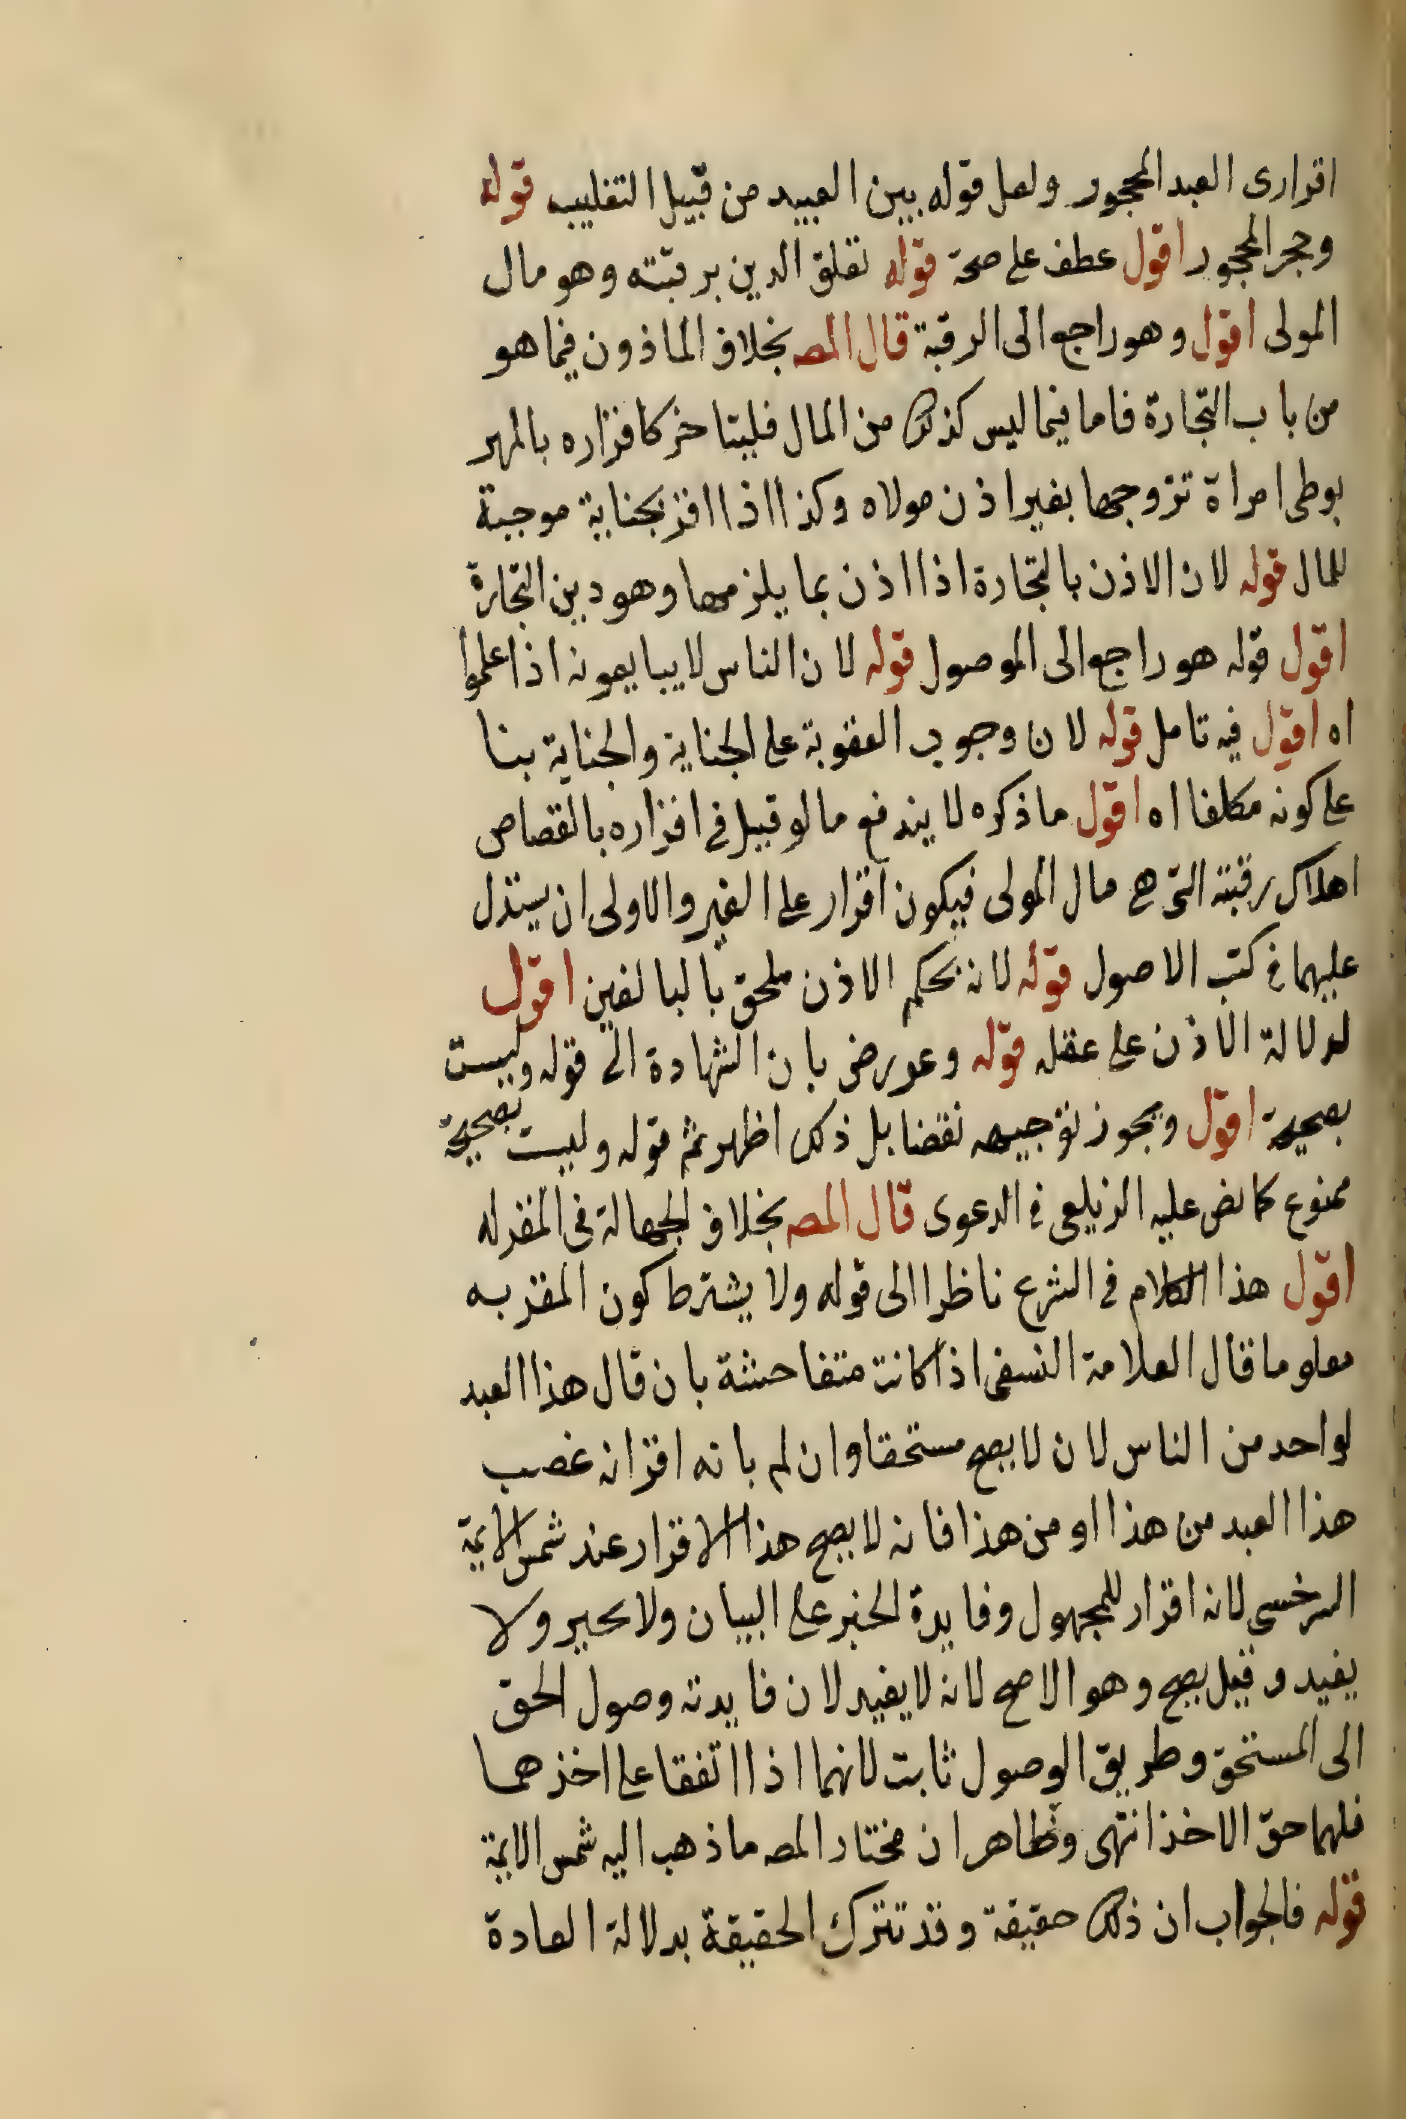 اقرارى العبد المحجور ولعل قوله بين العبيد من قبيل التغليب قوله
وحجر المحجور اقول عطف على صحة قوله تعلق الدين برقبته وهو مال
المولى اقول وهو راجع الى الرقبة قال المص بخلاف الماذون فيما هو
من باب التجارة فاما فيما ليس كذلك من المال فليتاخر كاقراره بالمهر
بوطى امراة تزوجها بغير اذن مولاه وكذا اذا اقر بجناية موجبة
للمال قوله لان الاذن بالتجارة اذا اذن بما يلزمها وهو دين التجارة
اقول قوله هو راجع الى الموصول قوله لان الناس لا يبايعونه اذا علموا
اه اقول فيه تامل قوله لان وجوب العقوبة على الجناية والجناية بنا
على كونه مكلفا اه اقول ما ذكره لا يندفع ما لو قيل فى اقراره بالقصاص
اهلاك رقبته التى هى مال المولى فيكون اقرار على الغير والاولى ان يستدل
عليهما فى كتب الاصول قوله لانه بحكم الاذن ملحق بالبالغين اقول
لدلالة الاذن على عقله قوله وعورض بان الشهادة الى قوله وليست
بصحيحة اقول ويجوز توجيهه نقضا بل ذلك اظهر ثم قوله وليست بصحيحة
ممنوع كما نص عليه الزيلعى فى الدعوى قال المص بخلاف الجهالة فى المقر له
اقول هذا الكلام فى الشرع ناظرا الى قوله ولا يشترط كون المقر به
معلوما قال العلامة النسفى اذا كانت متفاحشة بان قال هذا العبد
لواحد من الناس لان لا يصح مستحقا وان لم بانه اقر انه غصب
هذا العبد من هذا او من هذا فانه لا يصح هذا الاقرار عند شمس الايمة
السرخسى لانه اقرار للمجهول وفايدة الخبر على البيان ولا يجبر ولا
يفيد وقيل يصح وهو الاصح لانه لا يفيد لان فايدته وصول الحق
الى المستحق وطريق الوصول ثابت لانهما اذا اتفقا على اخذهما
فلهما حق الاخذ انتهى وظاهر ان مختار المص ما ذهب اليه شمس الايمة
قوله فالجواب ان ذلك حقيقة وقد تترك الحقيقة بدلالة العادة